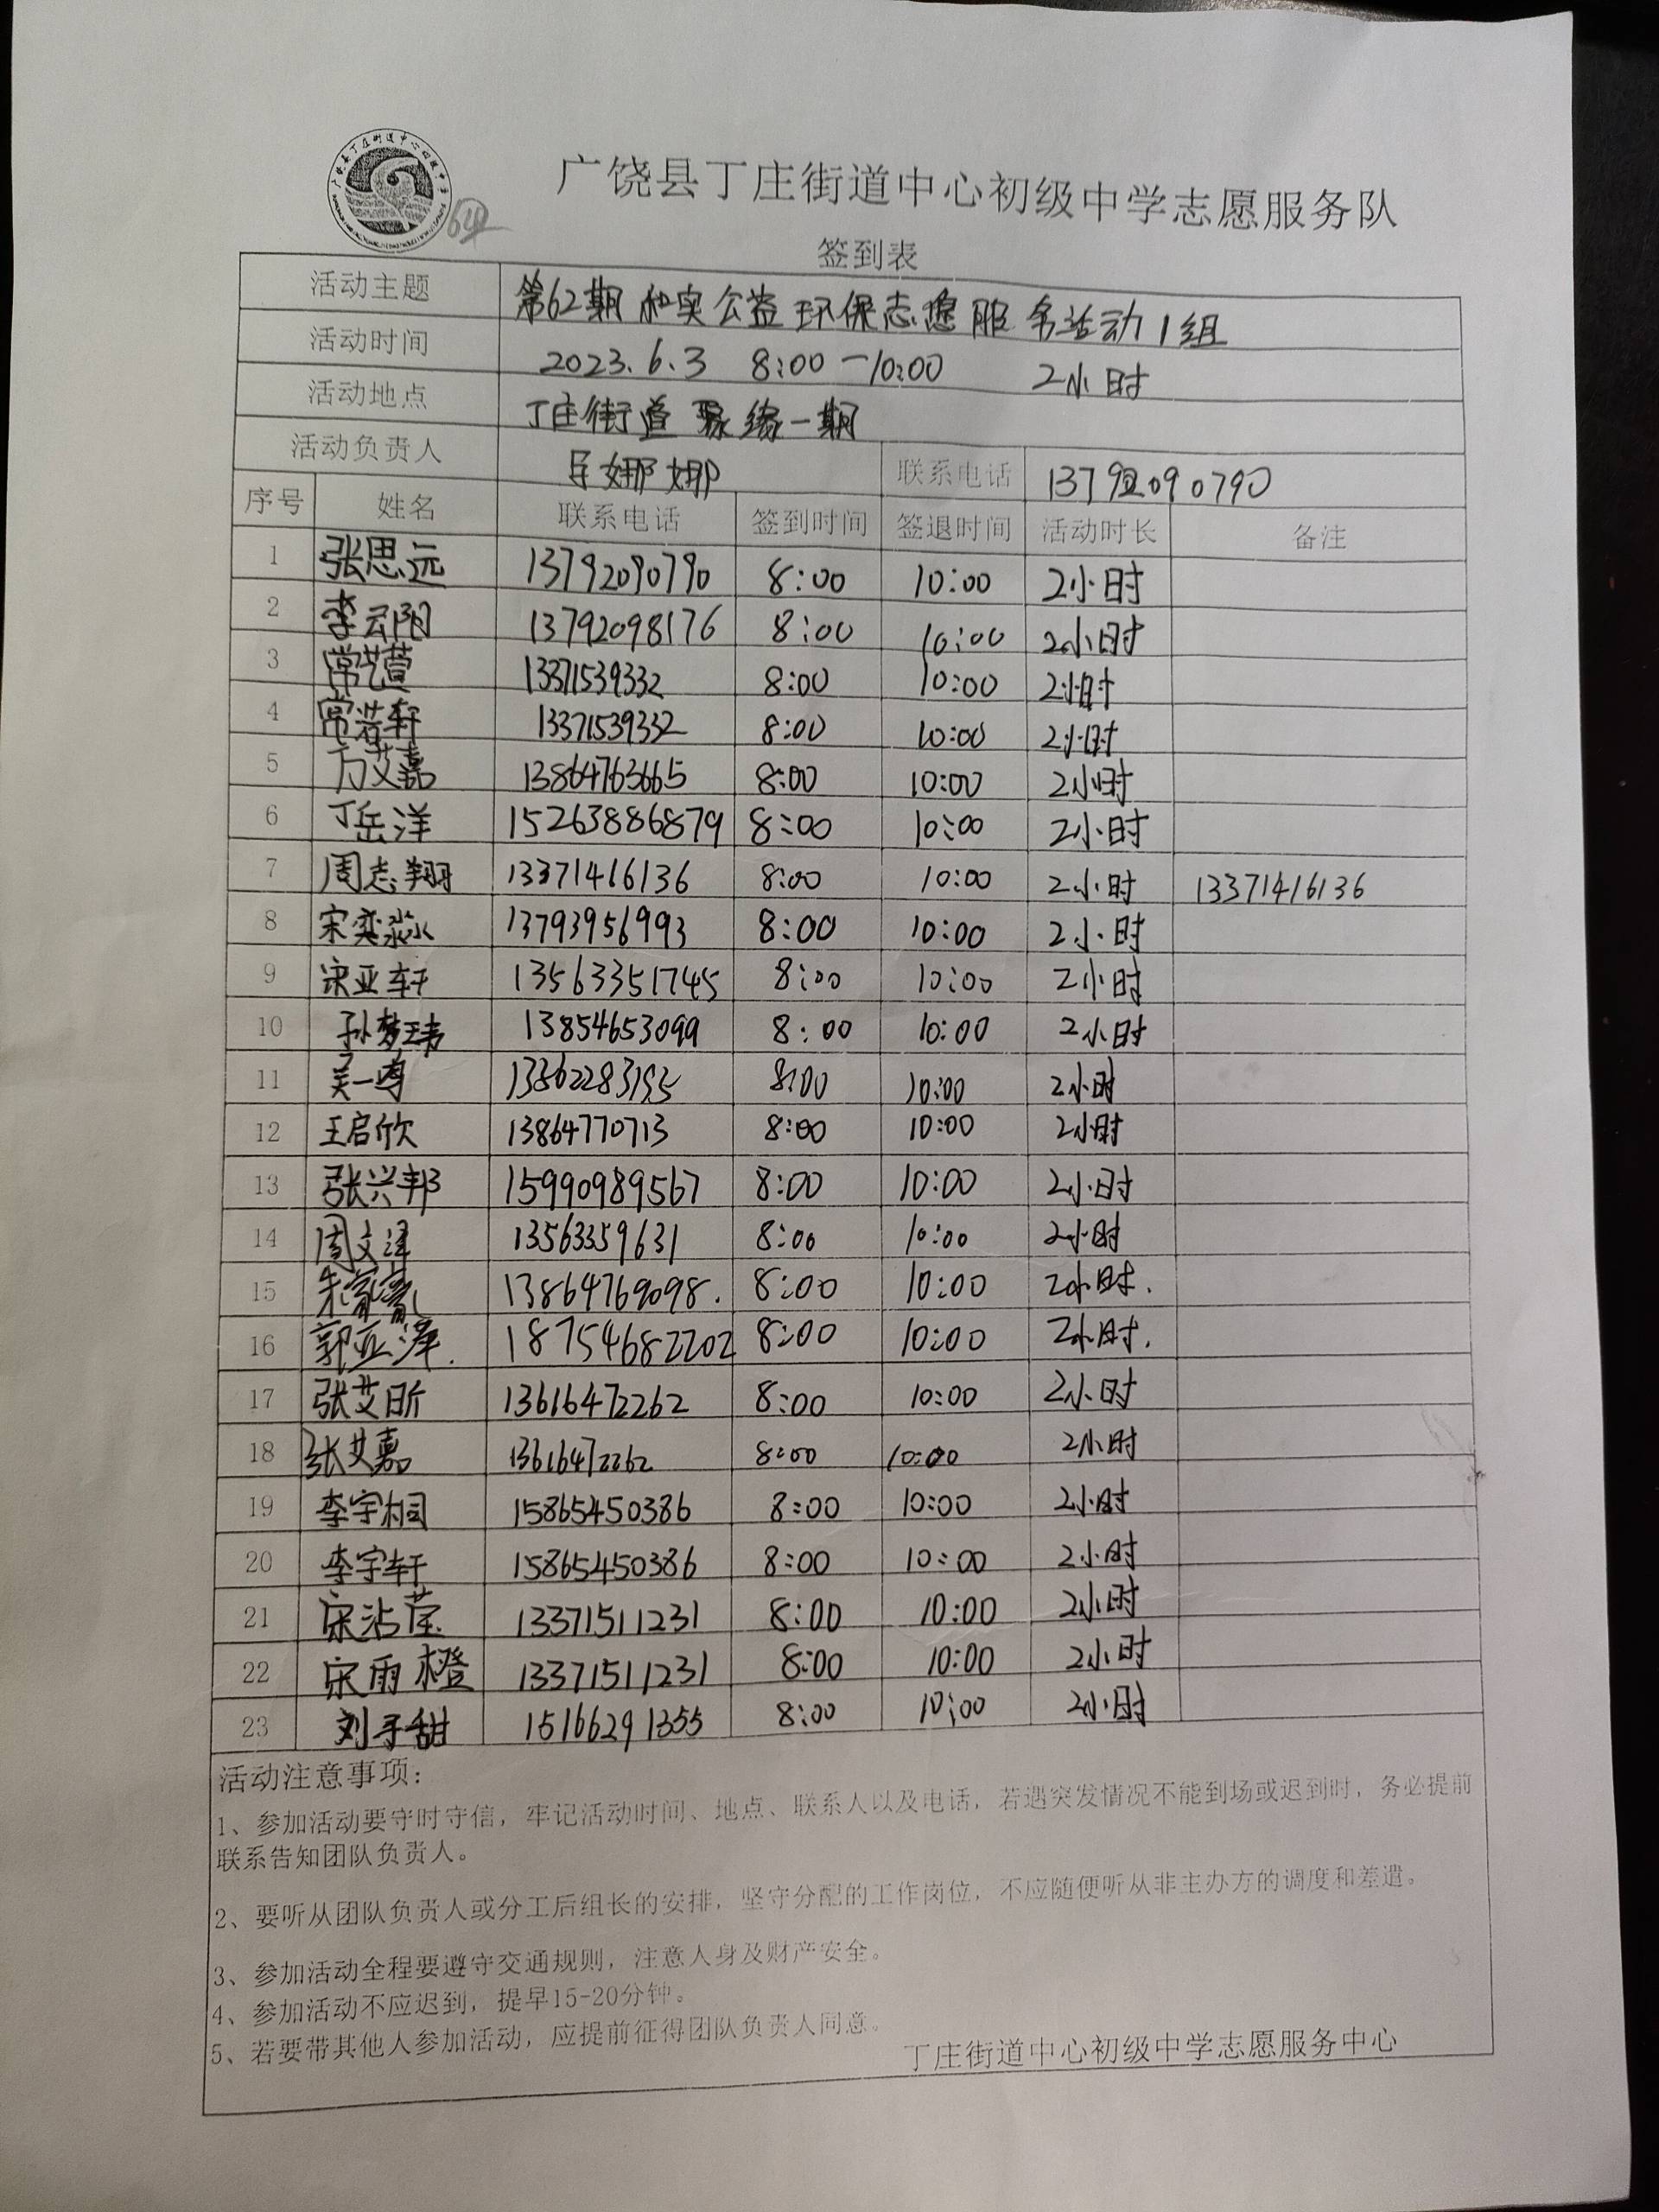 广饶县丁庄街道中心初级中学志愿服务队
签到表
活动主题 第62期和实公益环保志愿服务活动1组
活动时间 2023.6.3 8:00—10:00 2小时
活动地点 丁庄街道 缘一期
活动负责人 娜娜 联系电话 13792090790
序号 姓名 联系电话 签到时间 签退时间 活动时长 备注
1 张思远 13792090790 8:00 10:00 2小时
2 李云阳 13792098176 8:00 10:00 2小时
3 常艺萱 13371539332 8:00 10:00 2小时
4 常若轩 13371539332 8:00 10:00 2小时
5 万艾嘉 13864763665 8:00 10:00 2小时
6 丁岳洋 15263886879 8:00 10:00 2小时
7 周志翔 13371416136 8:00 10:00 2小时 13371416136
8 宋奕淼 13793956993 8:00 10:00 2小时
9 宋亚轩 13563351745 8:00 10:00 2小时
10 孙梦玮 13854653099 8:00 10:00 2小时
11 吴一 8:00 10:00 2小时
12 王启欣 13864770713 8:00 10:00 2小时
13 张兴邦 15990989567 8:00 10:00 2小时
14 周文泽 13563359631 8:00 10:00 2小时
15 朱 13864769098. 8:00 10:00 2小时.
16 郭亚泽. 18754682202 8:00 10:00 2小时.
17 张艾昕 13616472262 8:00 10:00 2小时
18 张艾嘉 13616472262 8:00 10:00 2小时
19 李宇桐 15865450386 8:00 10:00 2小时
20 李宇轩 15865450386 8:00 10:00 2小时
21 宋沾莹 13371511231 8:00 10:00 2小时
22 宋雨橙 13371511231 8:00 10:00 2小时
23 刘子甜 15166291355 8:00 10:00 2小时
活动注意事项:
1、参加活动要守时守信，牢记活动时间、地点、联系人以及电话，若遇突发情况不能到场或迟到时，务必提前
联系告知团队负责人。
2、要听从团队负责人或分工后组长的安排，坚守分配的工作岗位，不应随便听从非主办方的调度和差遣。
3、参加活动全程要遵守交通规则，注意人身及财产安全。
4、参加活动不应迟到，提早15-20分钟。
5、若要带其他人参加活动，应提前征得团队负责人同意。
丁庄街道中心初级中学志愿服务中心